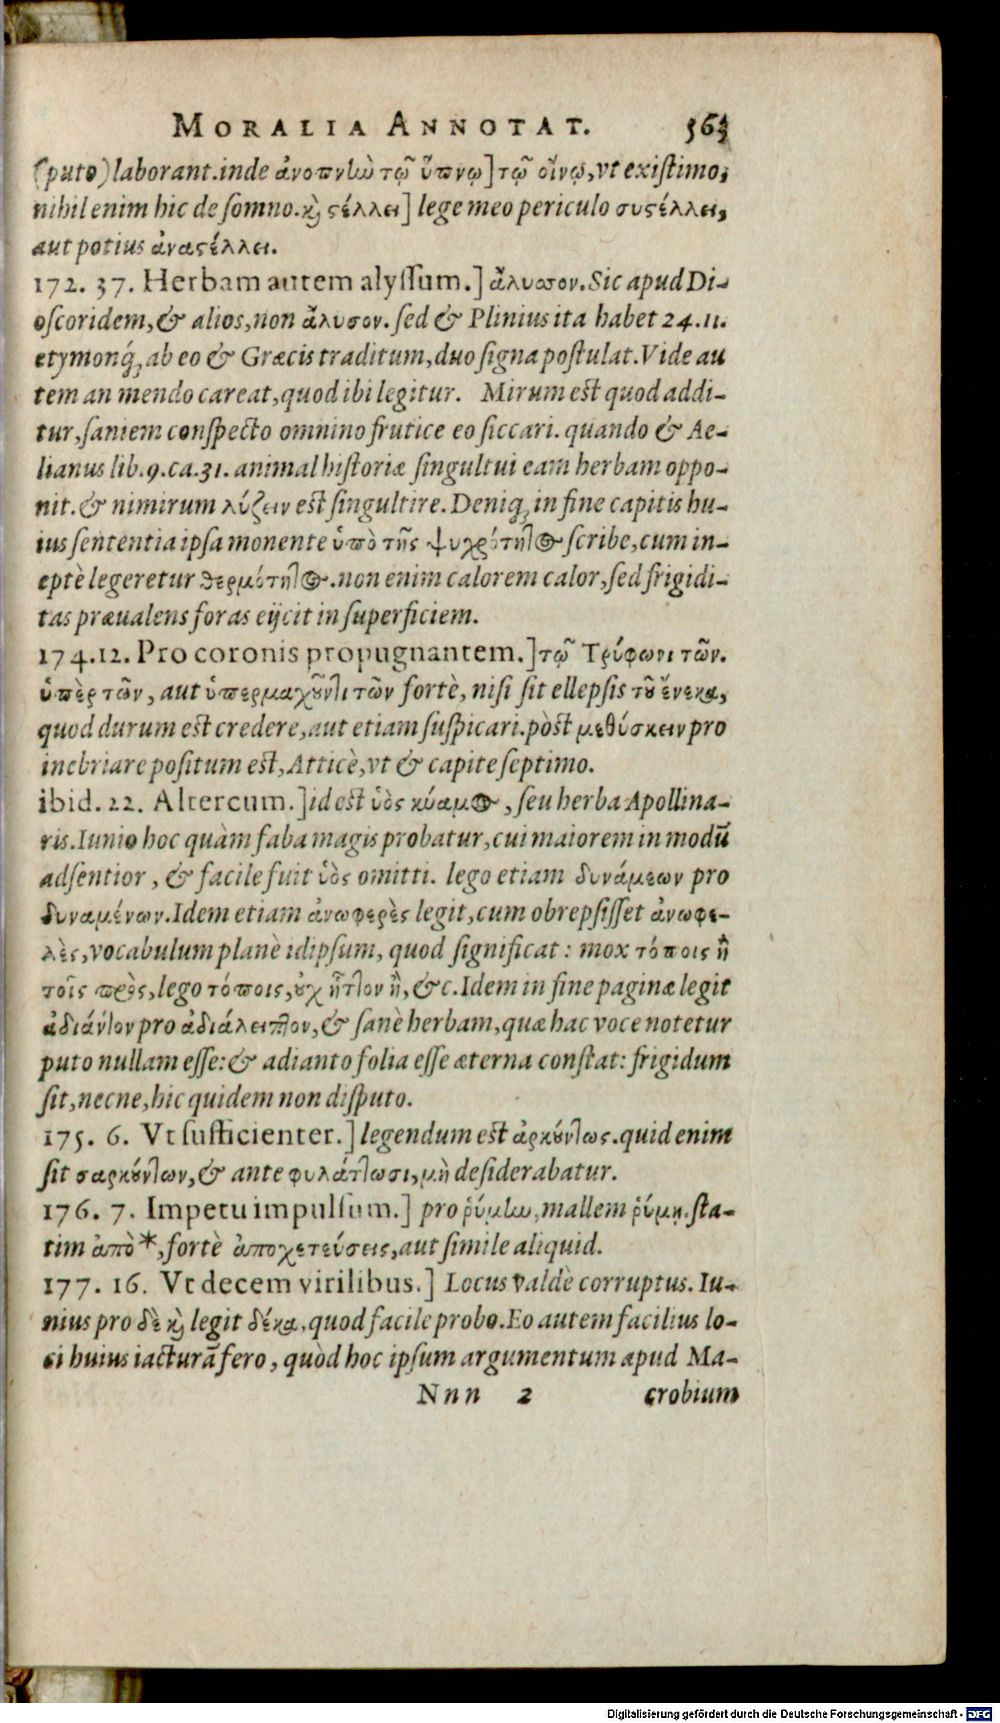 MORALIA ANNOTAT. 563
(puto) laborant. inde ἀνοπνὼ τῷ ὕπνῳ] τῷ οἴνῳ, vt existimo,
nihil enim hic de somno. κỳ ϛέλλει] lege meo periculo συϛέλλει,
aut potius ἀναϛέλλει.
172. 37. Herbam autem alyssum.] ἄλυσσον. Sic apud Di-
oscoridem, & alios, non ἄλυσον. sed & Plinius ita habet 24. 11.
etymonq́; ab eo & Græcis traditum, duo signa postulat. Vide au
tem an mendo careat, quod ibi legitur. Mirum est quod addi-
tur, saniem conspecto omnino frutice eo siccari. quando & Ae-
lianus lib. 9. ca. 31. animal historiæ singultui eam herbam oppo-
nit. & nimirum λύζειν est singultire. Deniq; in fine capitis hu-
ius sententia ipsa monente ὑπὸ τῆς ψυχρότητος scribe, cum in-
eptè legeretur θερμότητος. non enim calorem calor, sed frigidi-
tas præualens foras eijcit in superficiem.
174. 12. Pro coronis propugnantem.] τῷ Τρύφωνι τῶν.
ὑπὲρ τῶν, aut ὑπερμαχοῦντι τῶν fortè, nisi sit ellepsis τοῦ ἕνεκα,
quod durum est credere, aut etiam suspicari. pòst μεθύσκειν pro
inebriare positum est, Atticè, vt & capite septimo.
ibid. 22. Altercum.] id est ὑὸς κύαμος, seu herba Apollina-
ris. Iunio hoc quàm faba magis probatur, cui maiorem in modū
adsentior, & facile fuit ὑὸς omitti. lego etiam δυνάμεων pro
δυναμένων. Idem etiam ἀνωφερὲς legit, cum obrepsisset ἀνωφε-
λὲς, vocabulum planè idipsum, quod significat: mox τόποις ἢ
τοῖς πρὸς, lego τόποις, οὐχ ἧττον ἢ, &c. Idem in fine paginæ legit
ἀδιάντον pro ἀδιάλειπτον, & sanè herbam, quæ hac voce notetur
puto nullam esse: & adianto folia esse æterna constat: frigidum
sit, necne, hic quidem non disputo.
175. 6. Vt sufficienter.] legendum est ἀρκούντως. quid enim
sit σαρκούντων, & ante φυλάττωσι, μὴ desiderabatur.
176. 7. Impetu impulsum.] pro ῥύμω, mallem ῥύμῃ. sta-
tim ἀπὸ *, fortè ἀποχετεύσεις, aut simile aliquid.
177. 16. Vt decem virilibus.] Locus valdè corruptus. Iu-
nius pro δὲ κỳ legit δέκα, quod facile probo. Eo autem facilius lo-
ci huius iacturā fero, quòd hoc ipsum argumentum apud Ma-
Nnn 2 crobium
Digitalisierung gefördert durch die Deutsche Forschungsgemeinschaft - DFG